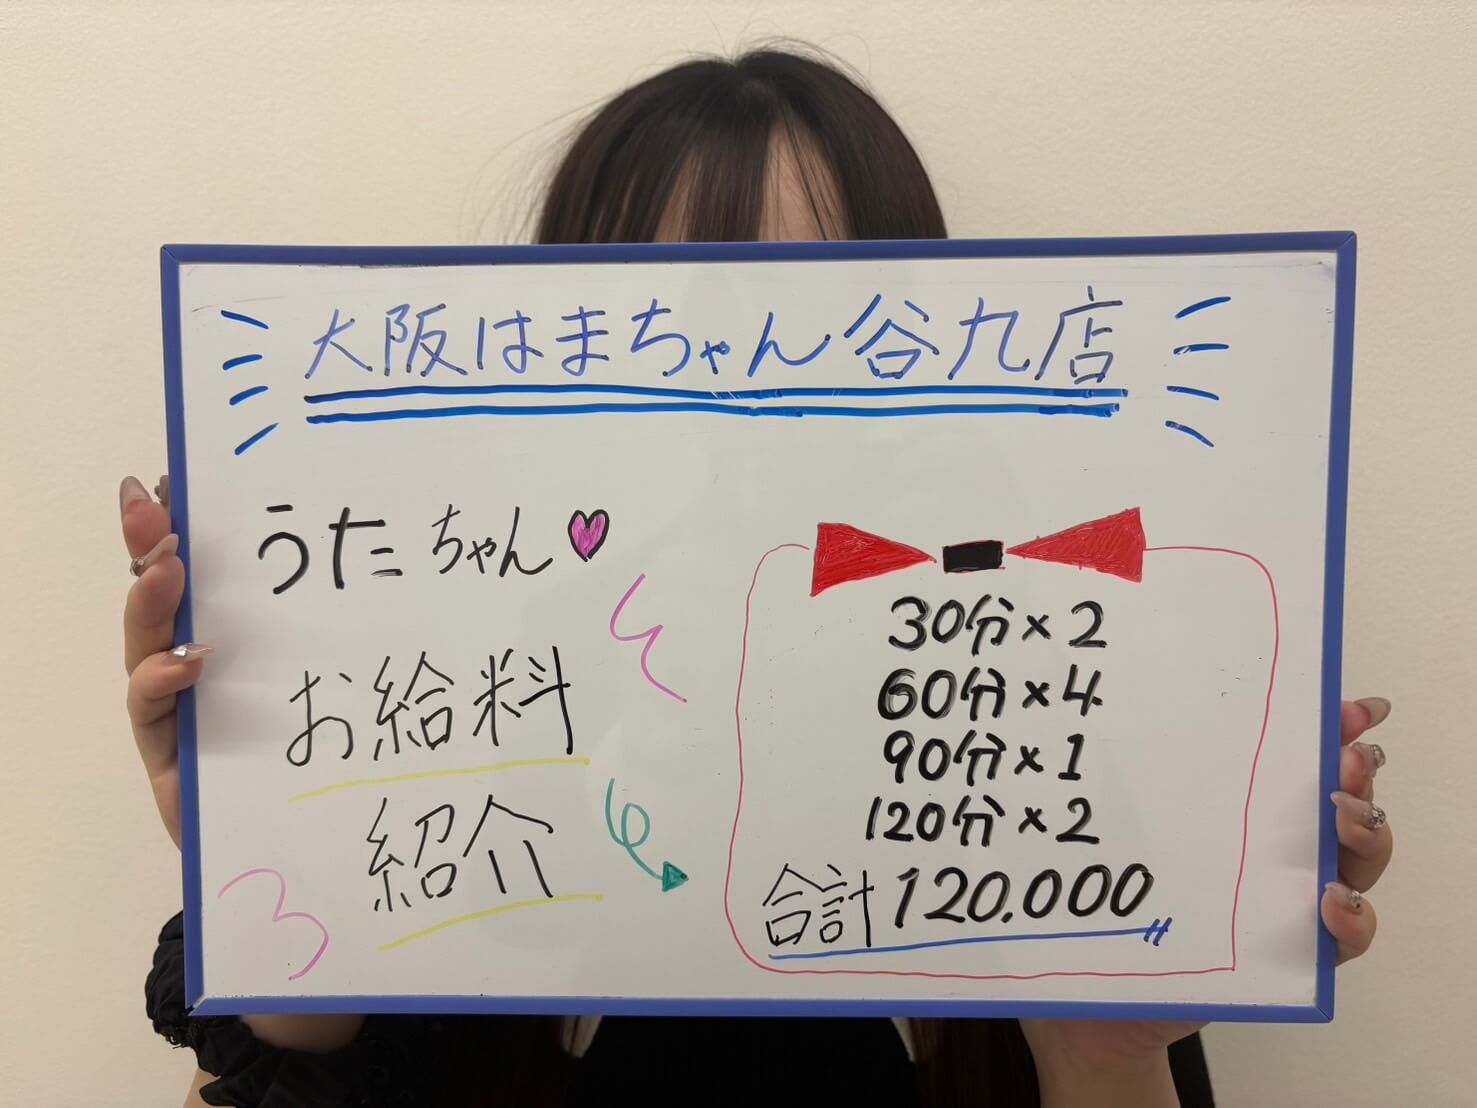 大阪はまちゃん谷九店
うたちゃん
お給料
紹介
30分×2
60分×4
90分×1
120分×2
合計120.000